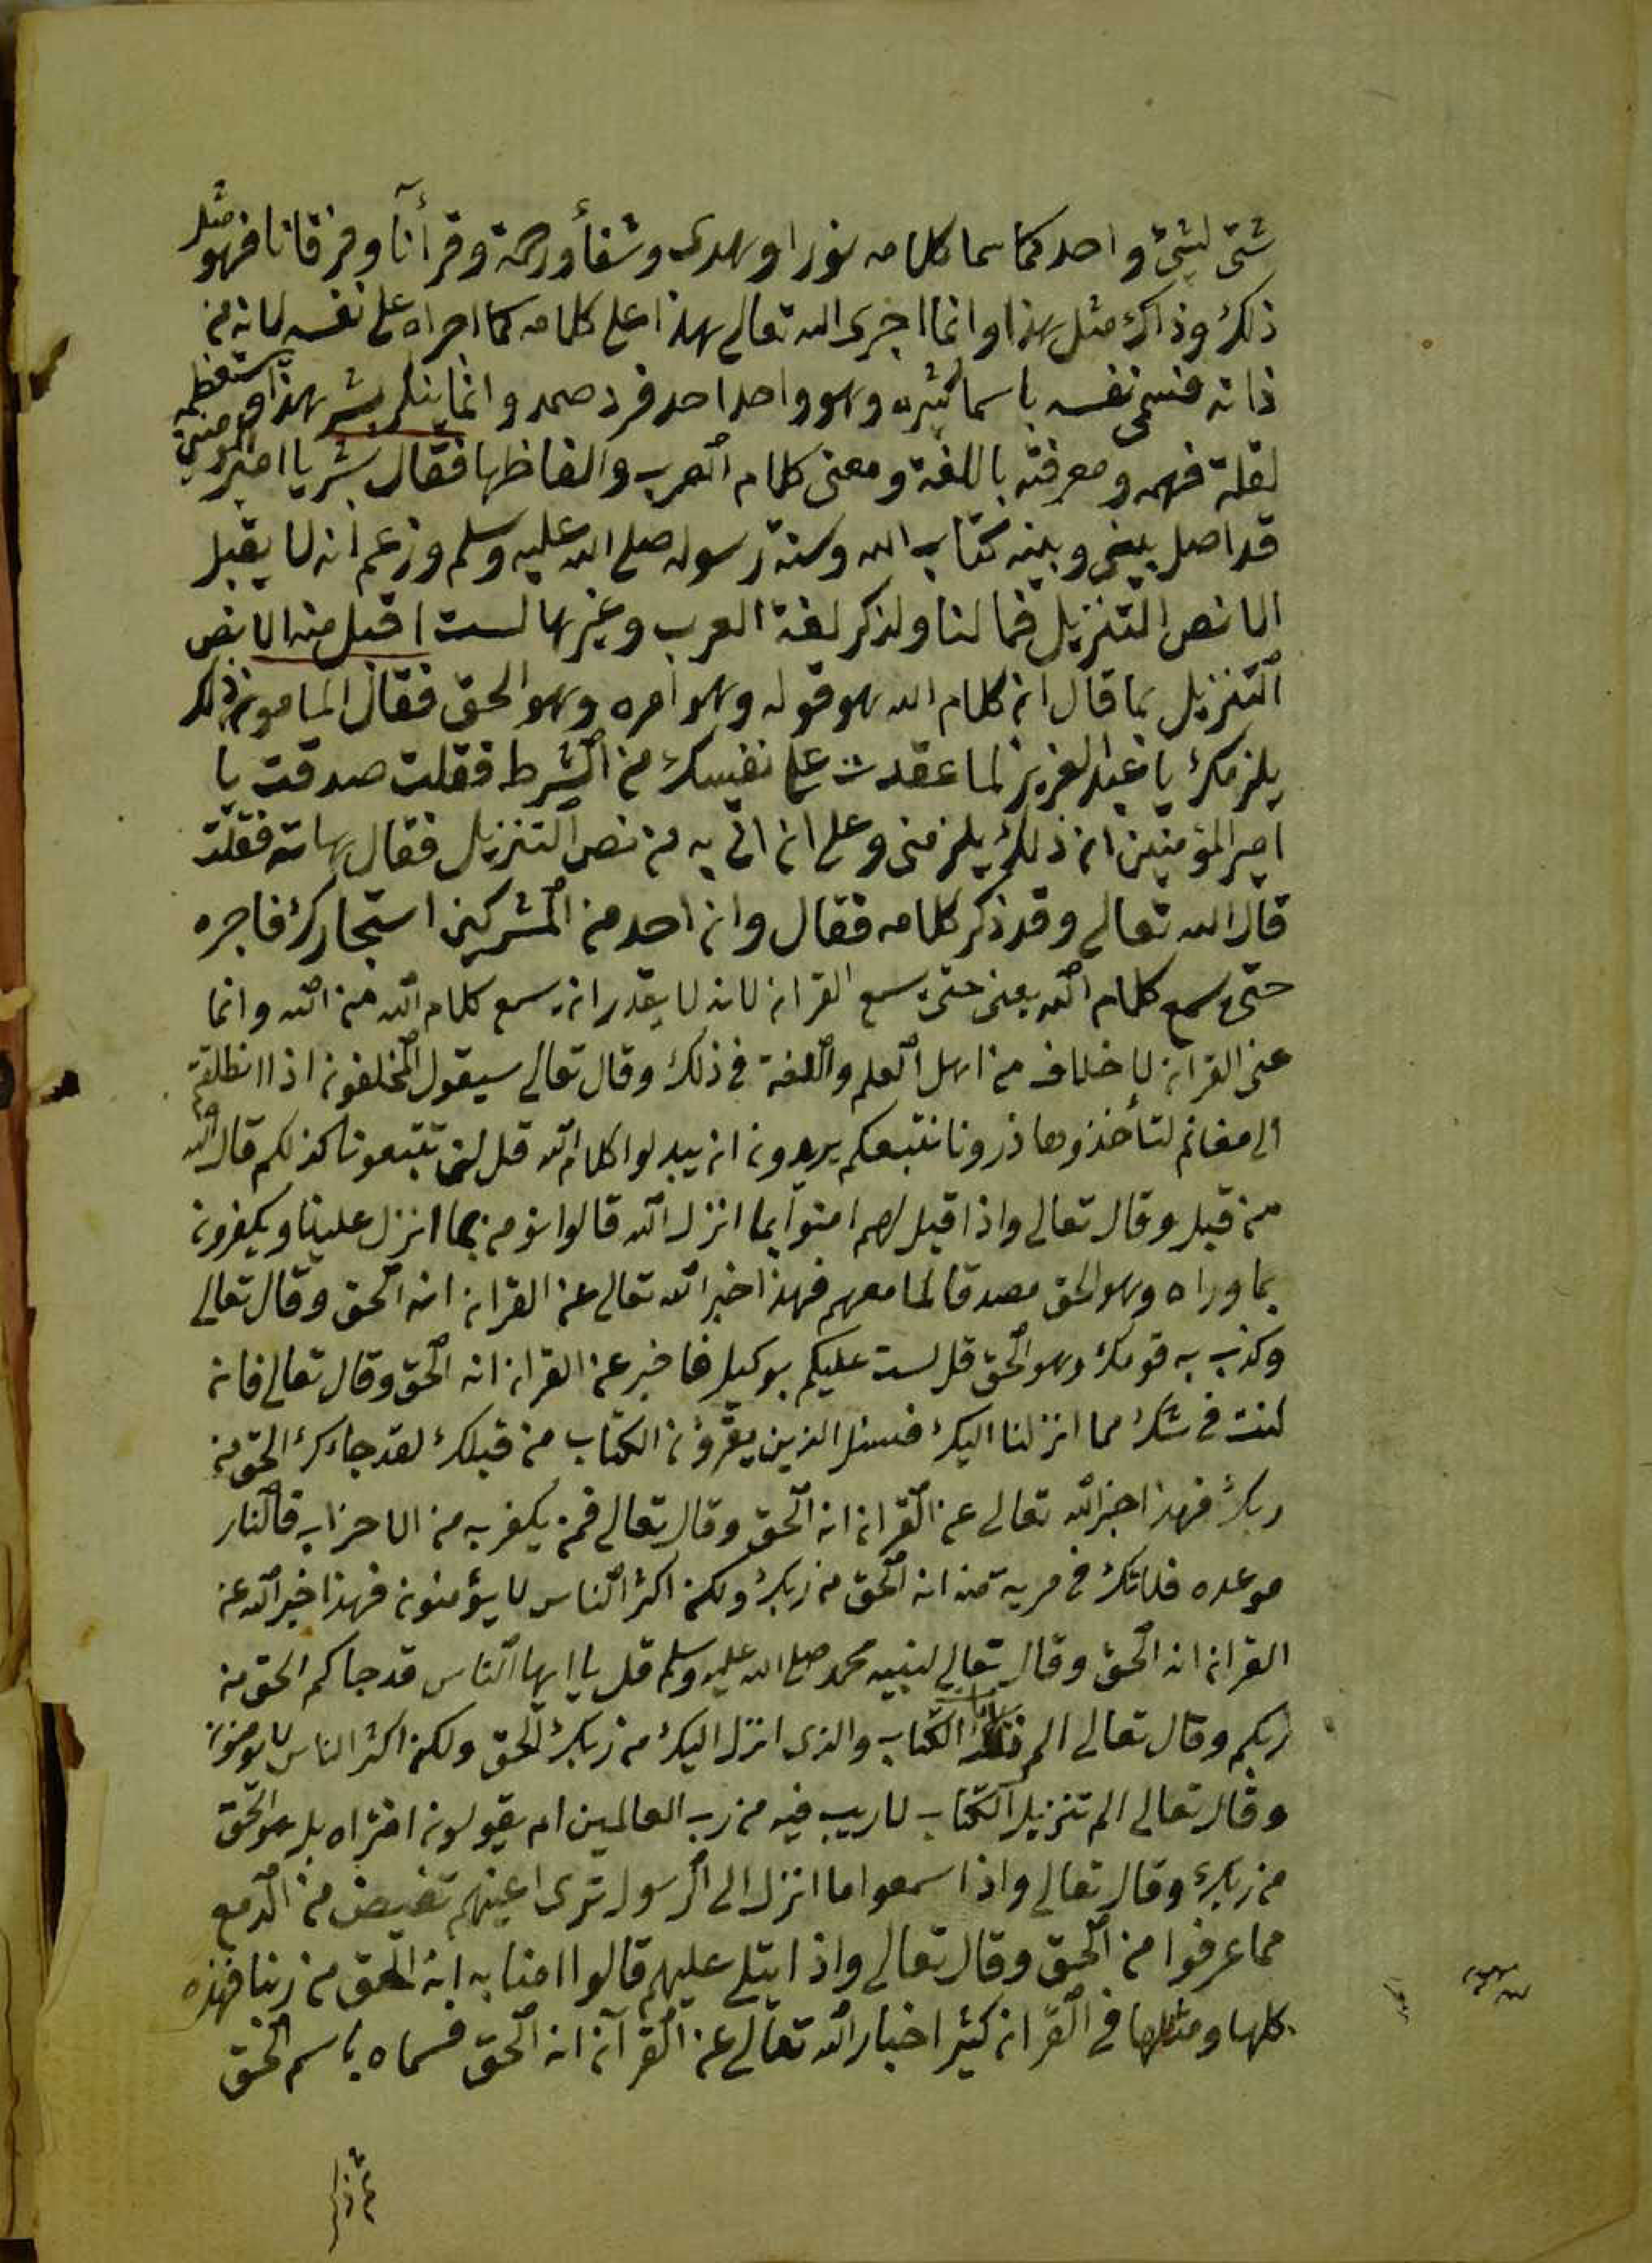 شتى لشئ واحد كما سما كلامه نورا وهدى وشفأ ورحمة وقرأنا وفرقانا فهو مثل
ذلك وذاك مثل هذا وانما اجرى الله تعالى هذا على كلامه كما اجراه على نفسه لانه من
ذاته فسمى نفسه باسما كثيره وهو واحد احد فرد صمد وانما ينكر بشر هذا ويستعظمه
لقلة فهمه ومعرفته باللغة ومعنى كلام العرب والفاظها فقال بشر يا امير المومنين
قد اصل بينى وبينه كتاب الله وسنة رسوله صلى الله عليه وسلم وزعم انه لا يقبل
الا نص التنزيل فما لنا ولذكر لغة العرب وغيرها لست اقبل منه الا نص
التنزيل بما قال ان كلام الله هو قوله وهو امره وهو الحق فقال المامون ذلك
يلزمك يا عبد العزيز لما عقدت على نفسك من الشرط فقلت صدقت يا
امير المؤمنين ان ذلك يلزمنى وعلى ان اتى به من نص التنزيل فقال هاته فقلت
قال الله تعالى وقد ذكر كلامه فقال وان احد من المشركين استجارك فاجره
حتى يسمع كلام الله يعنى حتى يسمع القران لانه لا يقدر ان يسمع كلام الله من الله وانما
عنى القران لا خلاف من اهل العلم واللغة فى ذلك وقال تعالى سيقول المخلفون اذا انطلقتم
الى مغانم لتأخذوها ذرونا نتبعكم يريدون ان يبدلوا كلام الله قل لن تتبعونا كذلكم قال الله
من قبل وقال تعالى واذا قيل لهم امنوا بما انزل الله قالوا نومن بما انزل علينا ويكفرون
بما وراه وهو الحق مصدقا لما معهم فهذا اخبر الله تعالى عن القران انه الحق وقال تعالى
وكذب به قومك وهو الحق قل لست عليكم بوكيل فاخبر عن القران انه الحق وقال تعالى فان
كنت فى شك مما انزلنا اليك فسئل الذين يقرؤن الكتاب من قبلك لقد جاءك الحق من
ربك فهذا اخبر الله تعالى عن القران انه الحق وقال تعالى فمن يكفر به من الاحزاب فالنار
موعده فلا تك فى مرية منه انه الحق من ربك ولكن اكثر الناس لا يؤمنون فهذا خبر الله عن
القران انه الحق وقال تعالى لنبيه محمد صلى الله عليه وسلم قل يا ايها الناس قد جاكم الحق من
ربكم وقال تعالى المر الكتاب والذى انزل اليك من ربك الحق ولكن اكثر الناس لا يومنون
وقال تعالى الم تنزيل الكتاب لا ريب فيه من رب العالمين ام يقولون افتراه بل هو الحق
من ربك وقال تعالى واذا سمعوا ما انزل الى الرسول ترى اعينهم تفيض من الدمع
مما عرفوا من الحق وقال تعالى واذا يتلى عليهم قالوا امنا به انه الحق من ربنا فهذه
كلها ومثلها فى القران كثير اخبار الله تعالى عن القرآن انه الحق فسماه باسم الحق
ثم ذكر